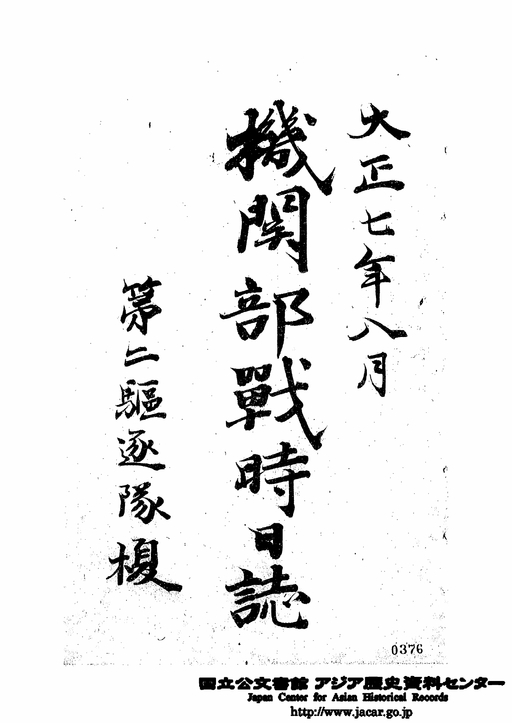 大正七年八月
機関部戰時日誌
第二驅逐隊榎
0376
国立公文書館 アジア歴史資料センター
Japan Center for Asian Historical Records
http://www.jacar.go.jp